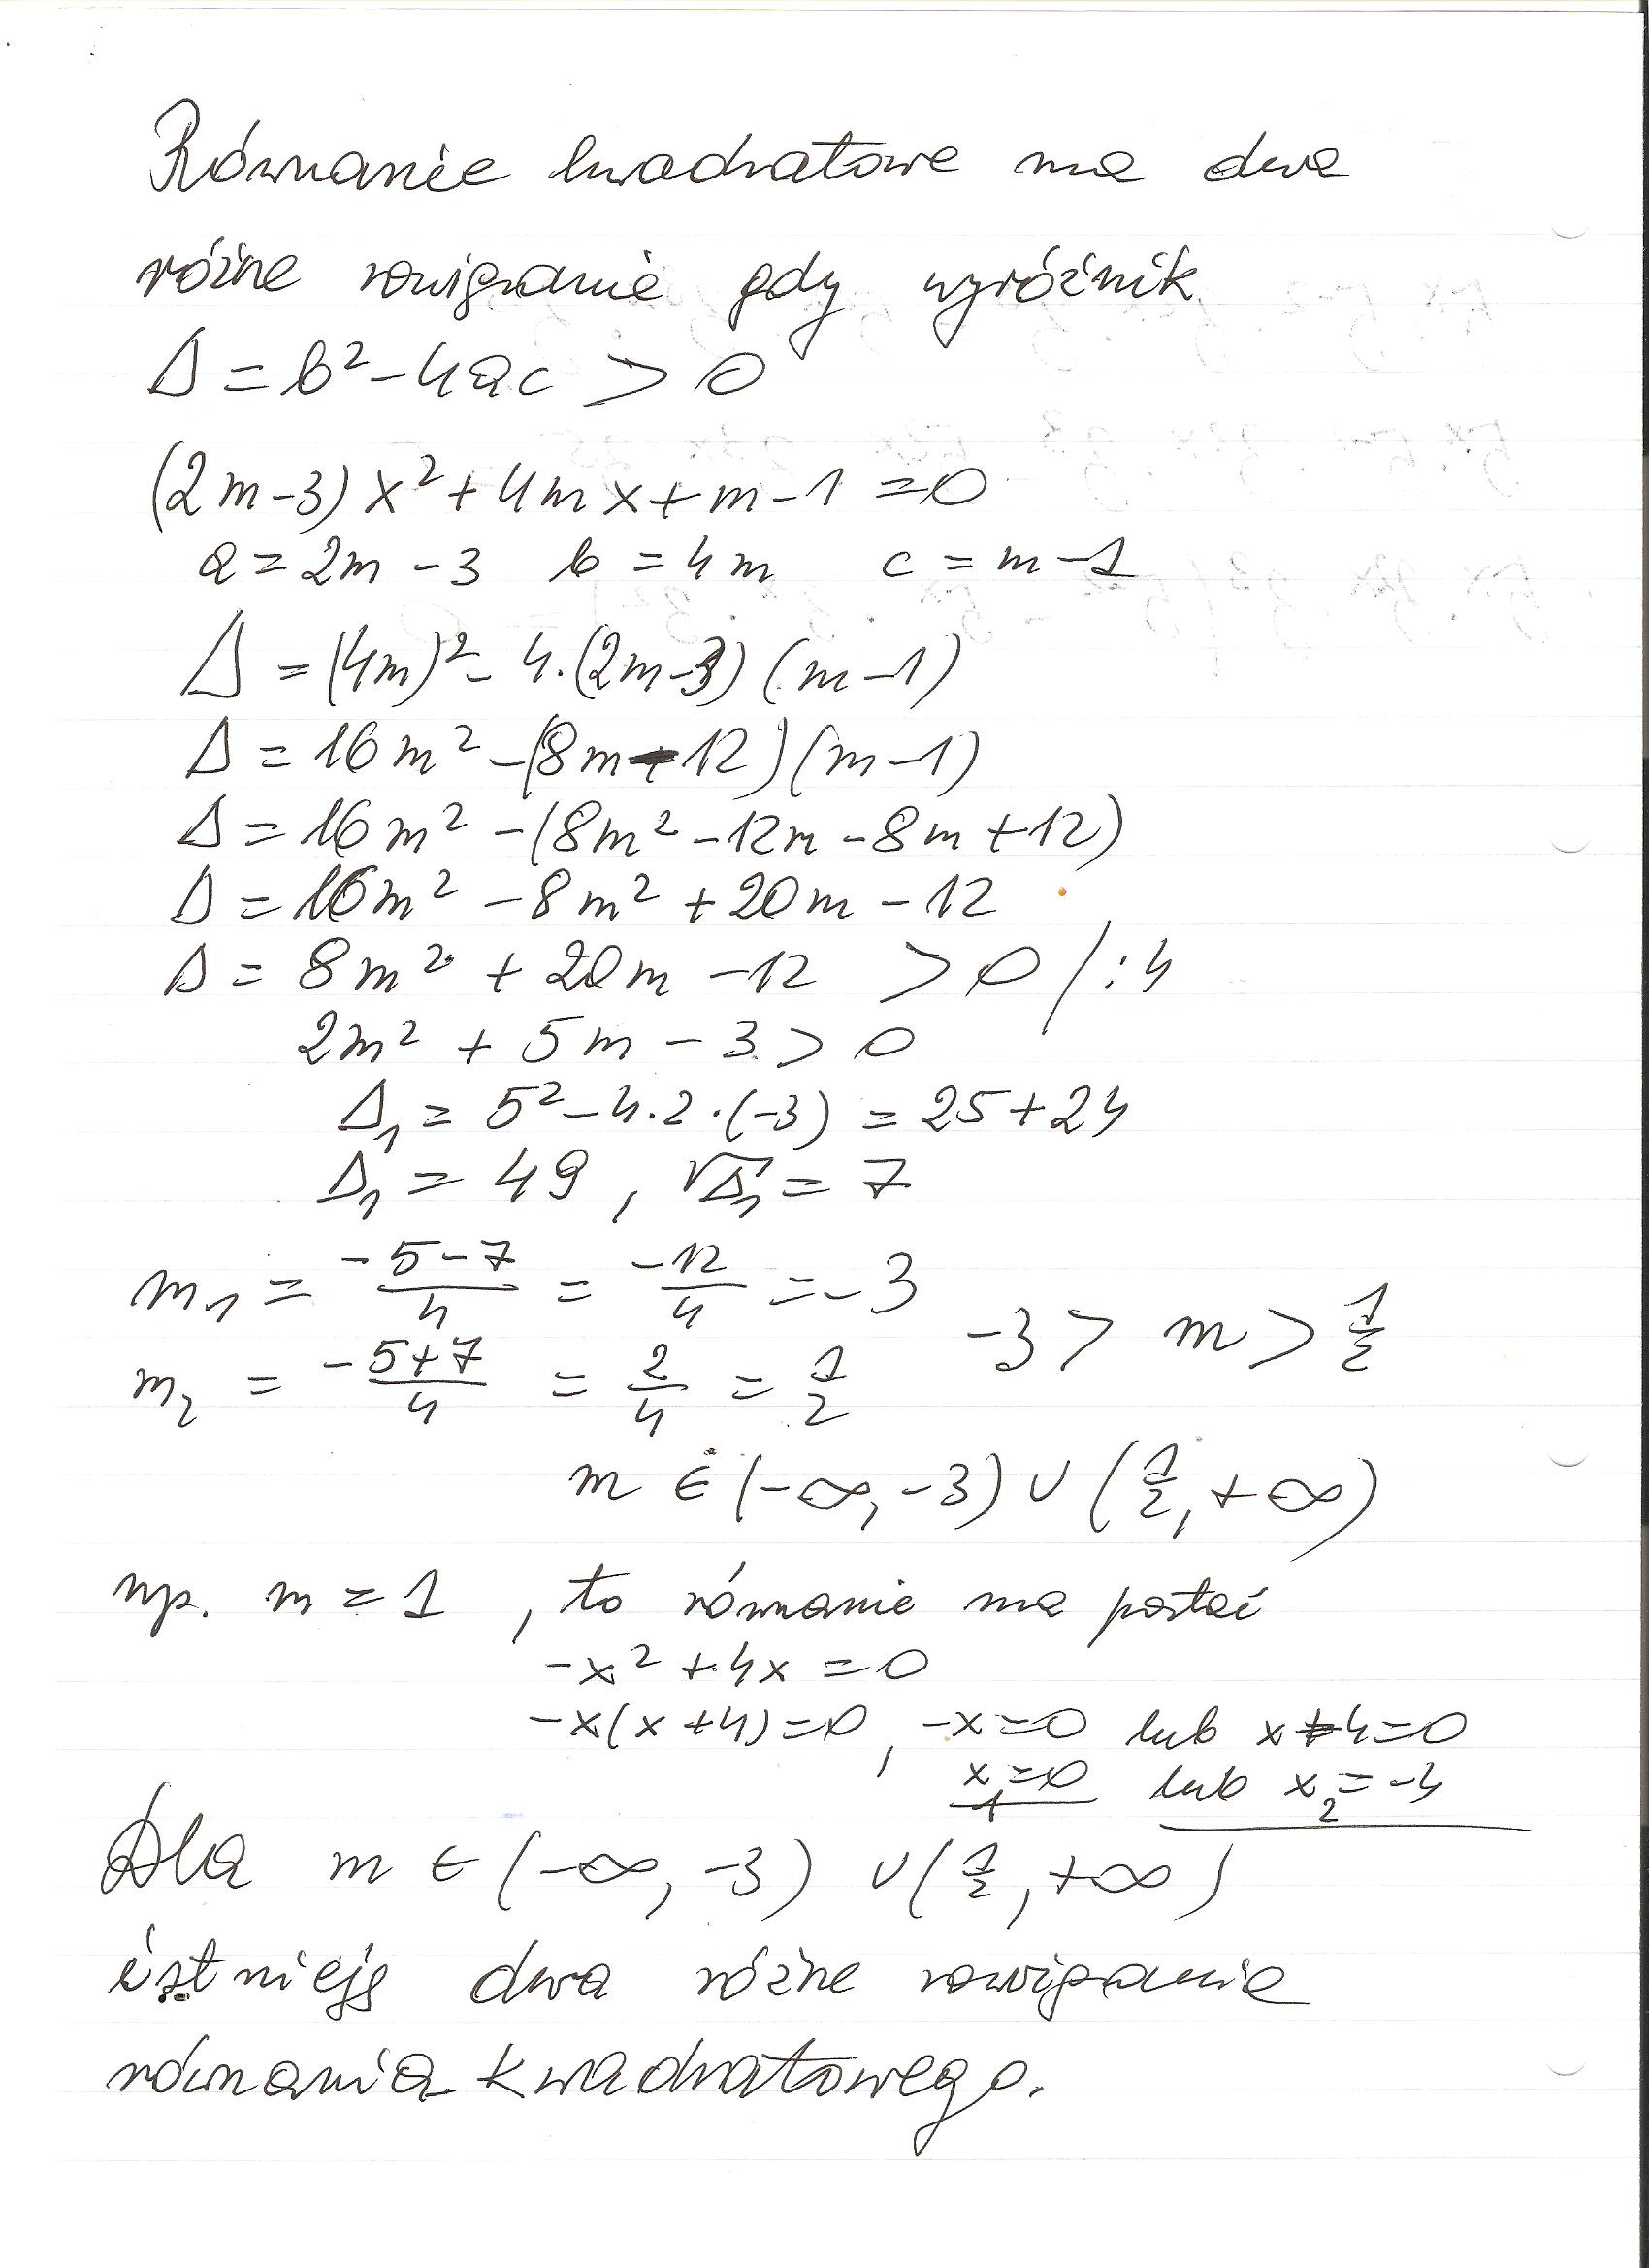 Równanie kwadratowe ma dwa
różne rozwiązania gdy wyróżnik
Δ = b² - 4ac > 0
(2m-3)x² + 4mx + m - 1 = 0
a = 2m - 3 b = 4m c = m - 1
Δ = (4m)² - 4·(2m-3)(m-1)
Δ = 16m² - (8m-12)(m-1)
Δ = 16m² - (8m² - 12m - 8m + 12)
Δ = 16m² - 8m² + 20m - 12
Δ = 8m² + 20m - 12 > 0 /:4
2m² + 5m - 3 > 0
Δ₁ = 5² - 4·2·(-3) = 25 + 24
Δ₁ = 49, √Δ₁ = 7
m₁ = (-5-7)/4 = -12/4 = -3
-3 > m > 1/2
m₂ = (-5+7)/4 = 2/4 = 1/2
m ∈ (-∞, -3) ∪ (1/2, +∞)
np. m = 1, to równanie ma postać
-x² + 4x = 0
-x(x+4) = 0, -x = 0 lub x+4 = 0
x₁ = 0 lub x₂ = -4
Dla m ∈ (-∞, -3) ∪ (1/2, +∞)
istnieją dwa różne rozwiązania
równania kwadratowego.